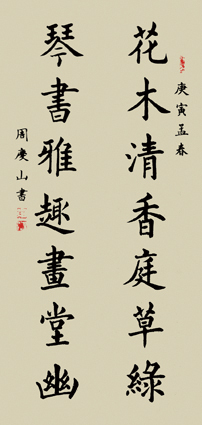 庚寅孟春
花木清香庭草綠
琴書雅趣畫堂幽
周慶山書